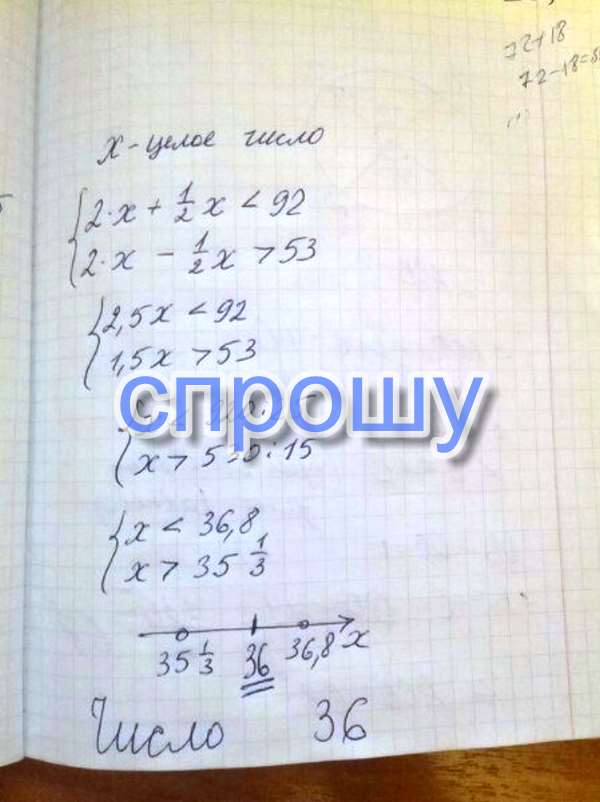 72+18
72-18=
x - целое число
{2·x + 1/2 x < 92
{2·x - 1/2 x > 53
{2,5x < 92
{1,5x > 53
спрошу
x > 530:15
{x < 36,8
{x > 35 1/3
35 1/3 36 36,8 x
Число 36